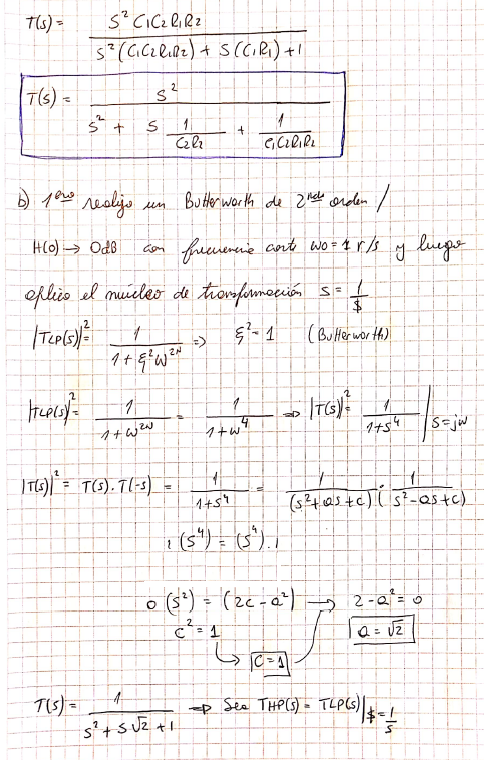 T(s) = S² C1C2R1R2 / (S²(C1C2R1R2) + S(C1R1) + 1)
T(s) = S² / (S² + S 1/(C2R2) + 1/(C1C2R1R2))
b) 1ero realizo un Butterworth de 2ndo orden /
H(0) → 0dB con frecuencia corte ω0 = 1 r/s y luego
aplico el núcleo de transformación S = 1/$
|TLP(s)|² = 1 / (1 + ξ²ω^2N) => ξ² = 1 (Butterworth)
|TLP(s)|² = 1 / (1 + ω^2N) = 1 / (1 + ω⁴) => |T(s)|² = 1 / (1 + S⁴) | S = jω
|T(s)|² = T(s) . T(-s) = 1 / (1 + S⁴) = 1 / (S² + as + c) . 1 / (S² - as + c)
1 (S⁴) = (S⁴) . 1
0 (S²) = (2c - a²) → 2 - a² = 0
c² = 1 a = √2
C = 1
T(s) = 1 / (S² + S√2 + 1) => Sea THP(s) = TLP(s) | $ = 1/S